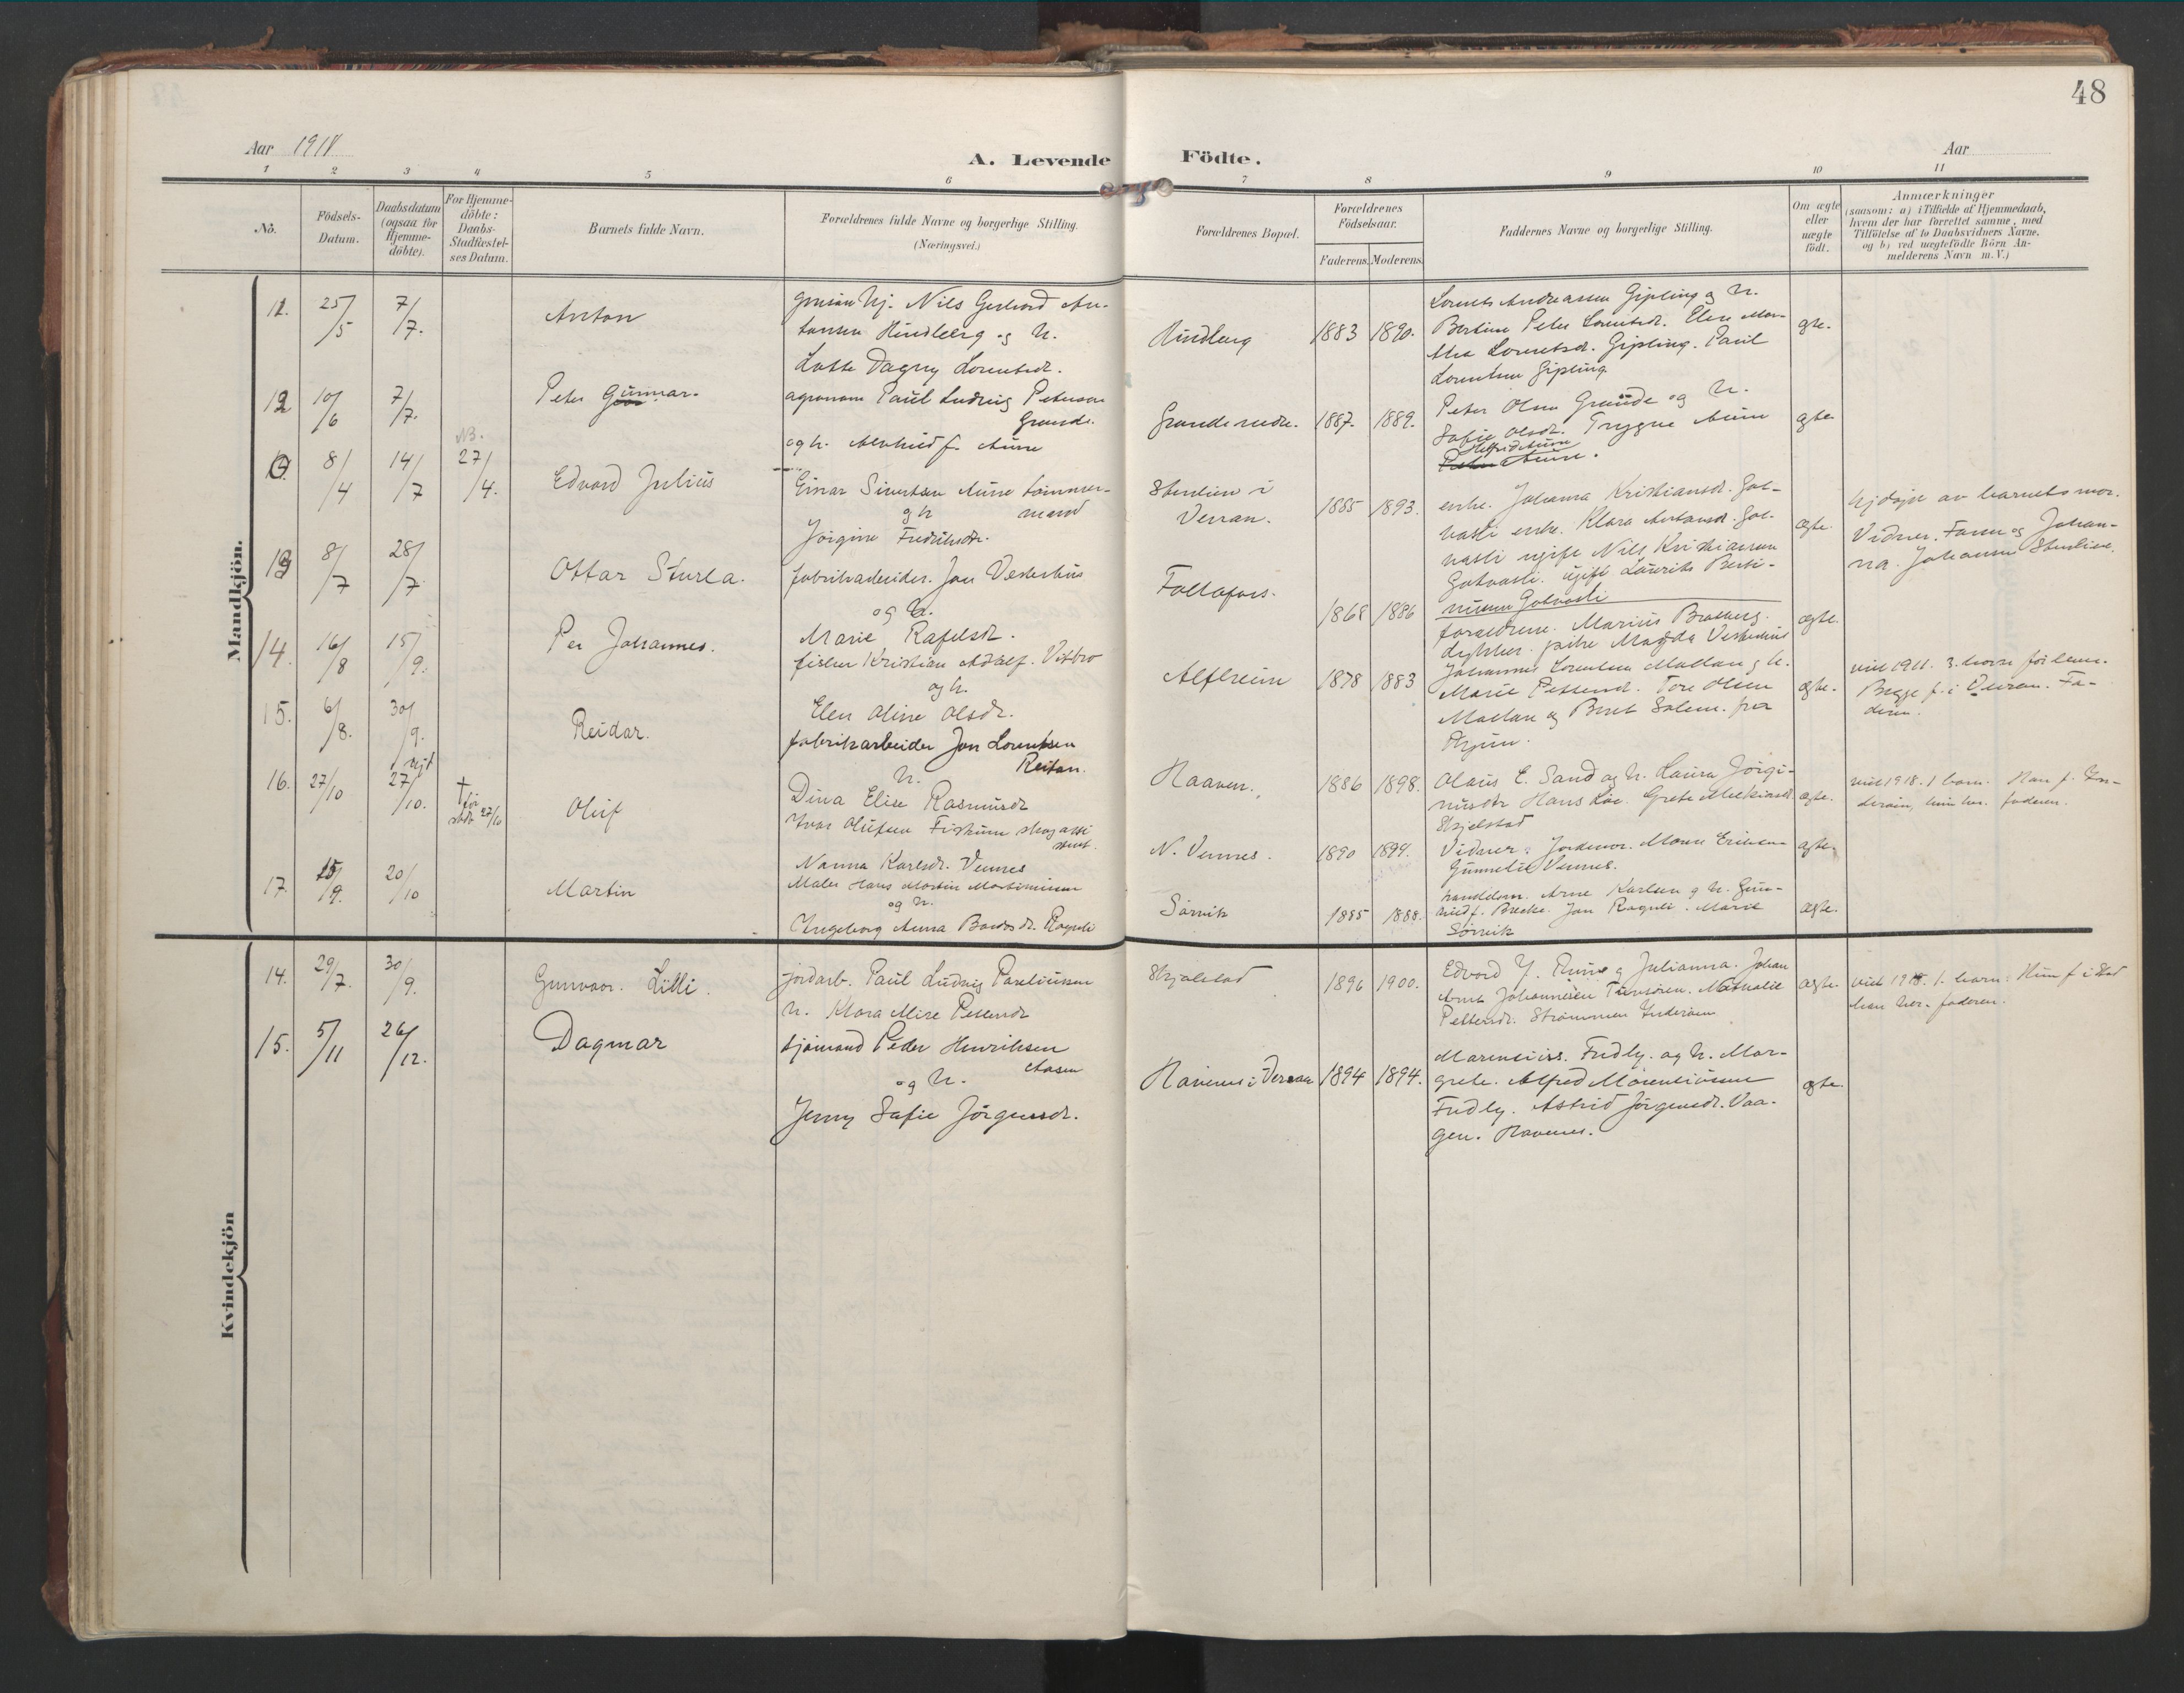 48
Aar 1918
A. Levende Fødte.
Aar
1 2 3 4 5 6 7 8 9 10 11
No.
Födsels-Datum.
Daabsdatum (ogsaa for Hjemme-döbte).
For Hjemme-döbte: Daabs-Stadfæstel-ses Datum.
Barnets fulde Navn.
Forældrenes fulde Navne og borgerlige Stilling.
(Næringsvei.)
Forældrenes Bopæl.
Forældrenes Födselsaar.
Faderens. Moderens.
Faddernes Navne og borgerlige Stilling.
Om ægte eller uægte födt.
Anmærkninger
(saasom: a) i Tilfælde af Hjemmedaab,
hvem der har forrettet samme, med
Tilföielse af to Daabsvidners Navne.
og b) ved uægtefödte Börn An-
melderens Navn m. V.)
Mandkjön.
11. 25/5 7/7. Anton
Nils Gerhard An-
tonsen Hindberg og h.
Lotte Dagny Lorentsdr.
Hindberg 1883 1890.
Lorents Andreassen Gipling og h.
Bertine Peter Lorentsdr. Elen Mar-
tha Lorentsdr. Gipling. Paul
Lorentsen Gipling
gte.
12 10/6 7/7. Peter Gunnar.
agronom Paul Ludvig Petersen
Grande.
og h. f. Aune
Grande nedre. 1887. 1889.
Peter Olsen Grande og h.
Sofie Olsdr. Trygve Aune
Aune.
gte
NB.
8/4 14/7 27/4. Edvard Julius
Einar Sivertsen Aune tömmer-
mand
og h
Jörgine Fredriksdr.
Stenlien i
Verran.
1885 1893.
enke. Johanna Kristiansdr. Gol-
vasli enke. Klara Antonsdr. Gol-
vasli ugift Nils Kristiansen
Golvasli. ugift Laurits Berti-
niussen Golvasli
ægte.
hjdöpt av barnets mor.
Vidner. Faren og Johan-
na. Johansen Stenlien.
13 8/7 28/7. Ottar Sturla.
fabrikarbeider. Jon Vesterhus
og h.
Marie Rafelsdr.
Follafoss.
1868 1886
forældrene. Marius Bratberg.
dykker. pike Magda Vesterhus
ægte.
14. 16/8 15/9. Per Johannes.
fisker Kristian Adolf. Vitbro
og h.
Elen Oline Olsdr.
Alfheim 1878 1883
Johannes Lorentsen Moltan g h.
Marie Pettersd. Tore Olsen
Moltan og Berit Solem. fra
ægte.
viet 1911. 3. barn för lever.
Begge f. i Verran. Fa-
deren.
15. 6/8. 30/9. Reidar.
fabrikarbeider Jon Lorentsen
Reitan.
h.
Dina Elise Rasmusdr
Haaven. 1886 1898.
Olaus E. Sand og h. Laura Jörgi-
nusdr Hans Loe. Grete
Skjelstad
ægte.
viet 1918. 1 barn. Han f. In-
deröien, hun her. faderen.
16. 27/10 hjd 27/10. † för stadf 27/10 Oluf
Ivar Olufsen Fiskum
Nanna Karlsdr. Vennes
N. Vennes. 1890 1894.
Vidner. Jordemor. Mosen Eriksen
Gunnelie Vennes.
ægte.
17. 15/9. 20/10 Martin
Maler Hans Martin Martiniussen
og h.
Ingeborg Anna Baardsdr. Ragnli
Sörvik 1885 1888.
handelsm. Arne Karlsen g h. Gun-
hild f. Brekke. Jon Ragnli. Marie
Sörvik
ægte.
Kvindekjön
14. 29/7. 30/9. Gunvaor. Lilli.
jordarb. Paul Ludvig Paveliussen
h. Klara Alise Pettersdr
Skjelstad 1896 1900.
Edvard J. Rune g Julianna. Johan
Arnt Johannesen Tunsören. Mathalie
Pettersdr. Strömmen Inderöien
ægte.
viet 1918. 1. barn. Hun f. i Stod
han her. faderen.
15. 5/11 26/12. Dagmar
sjömand Peder Henriksen
Aasen
og h.
Jenny Sofie Jörgensdr.
Havenes i Verran 1894 1894.
Marensius. Fredly. og h. Mar-
grete. Alfred Morensiussen
Fredly. Astrid Jörgensdr. Vaa-
gen. Havenes.
ægte.